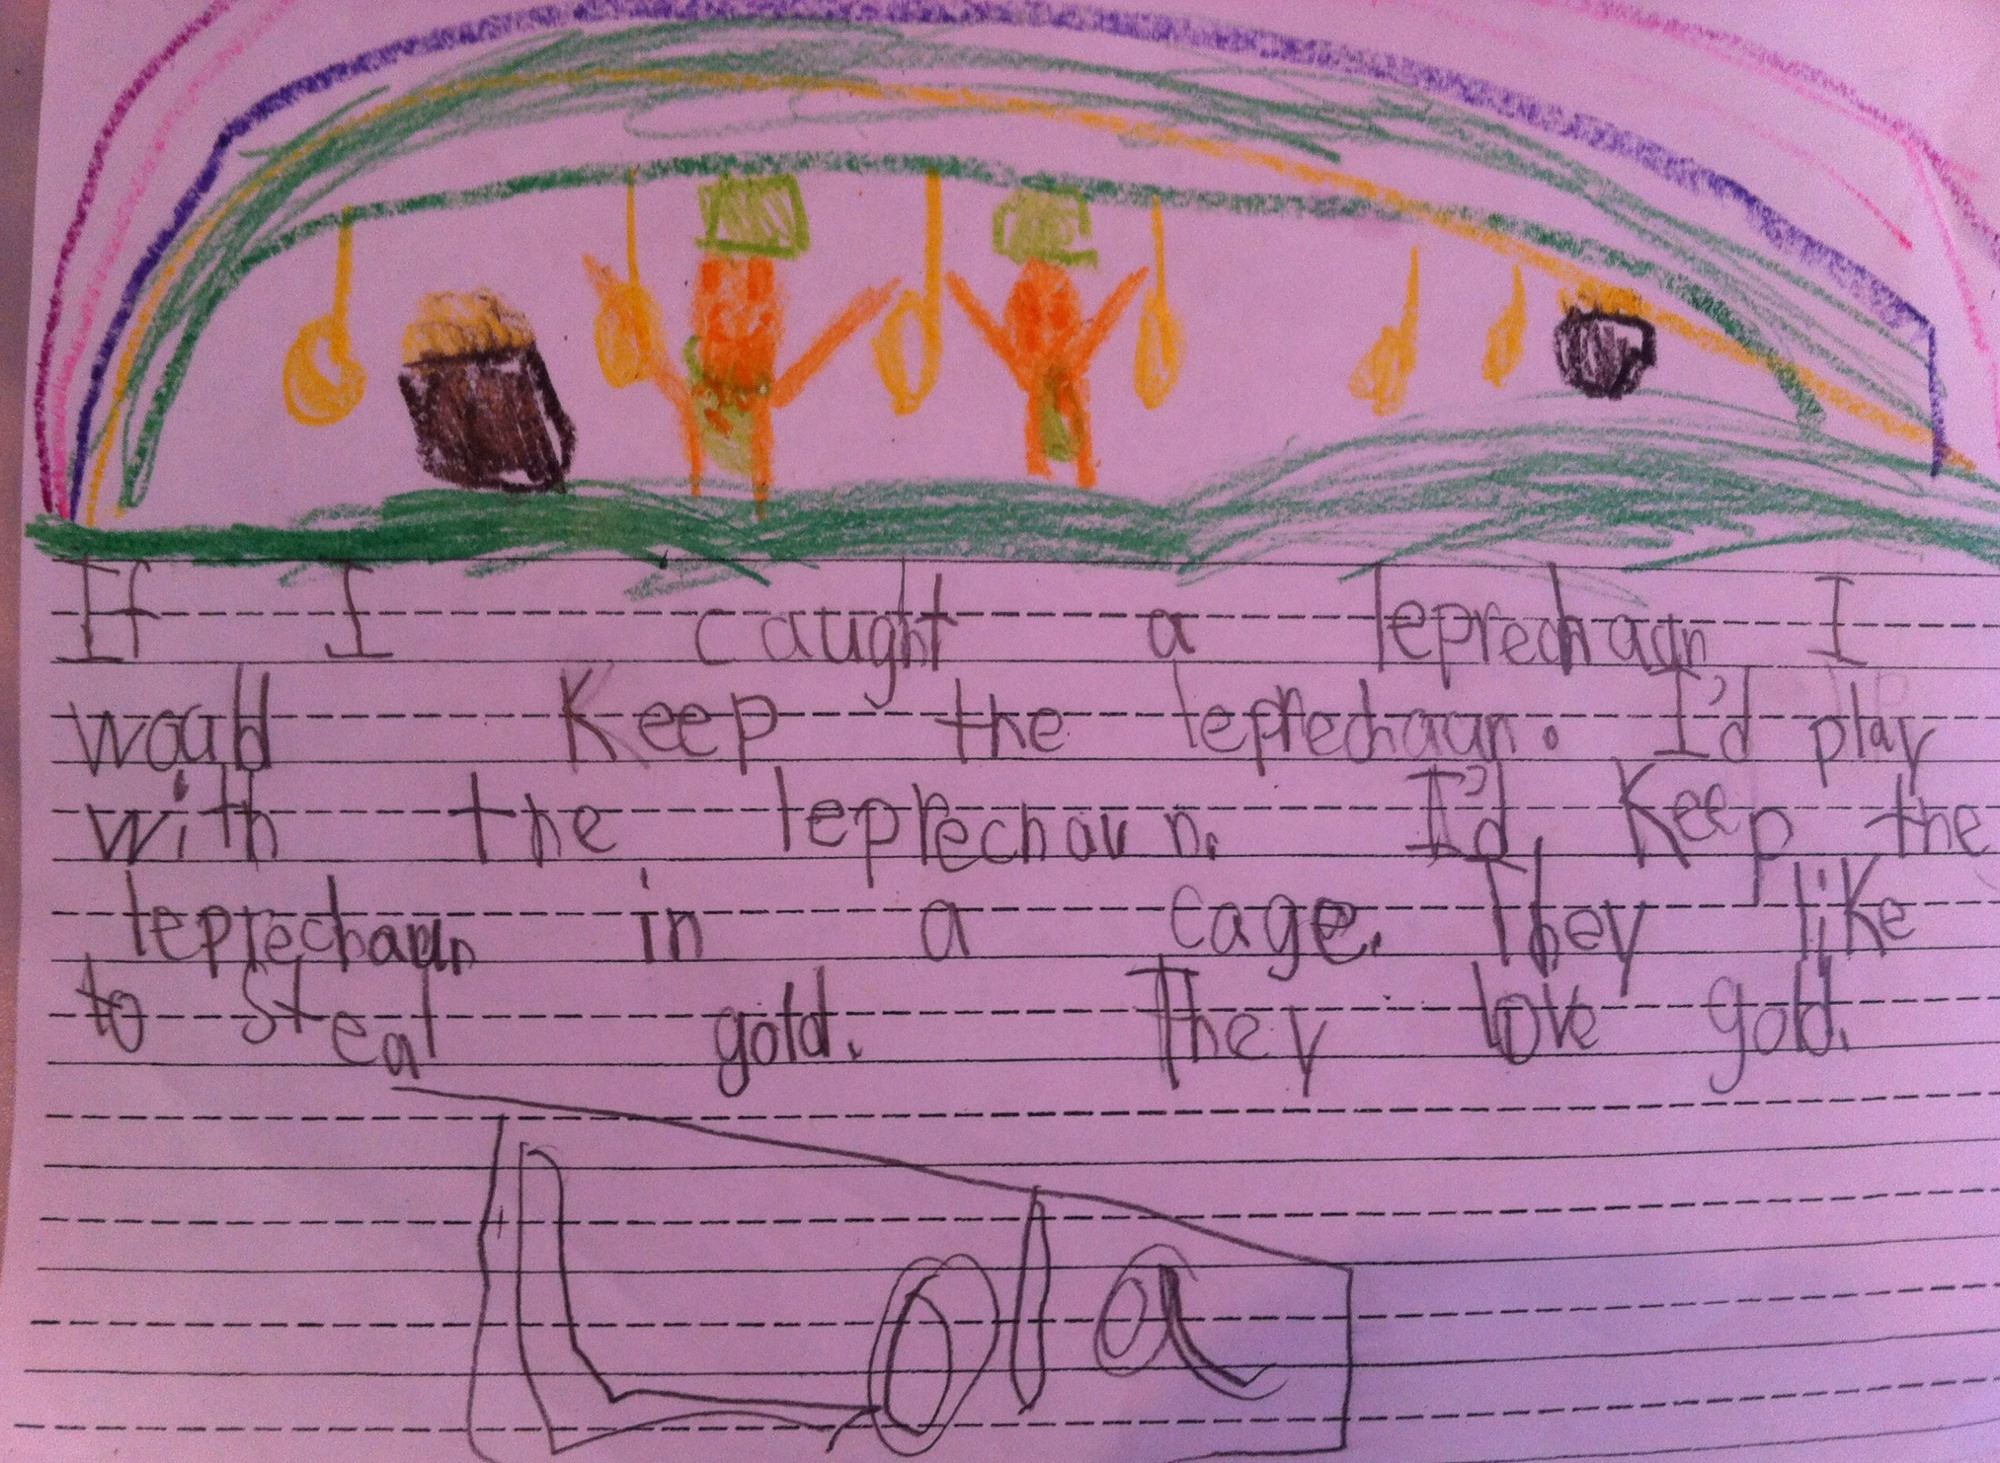 If I caught a leprechaun I
would Keep the leprechaun. I'd play
with the leprechaun. I'd Keep the
leprechaun in a cage. They like
to steal gold. They love gold.
Lola